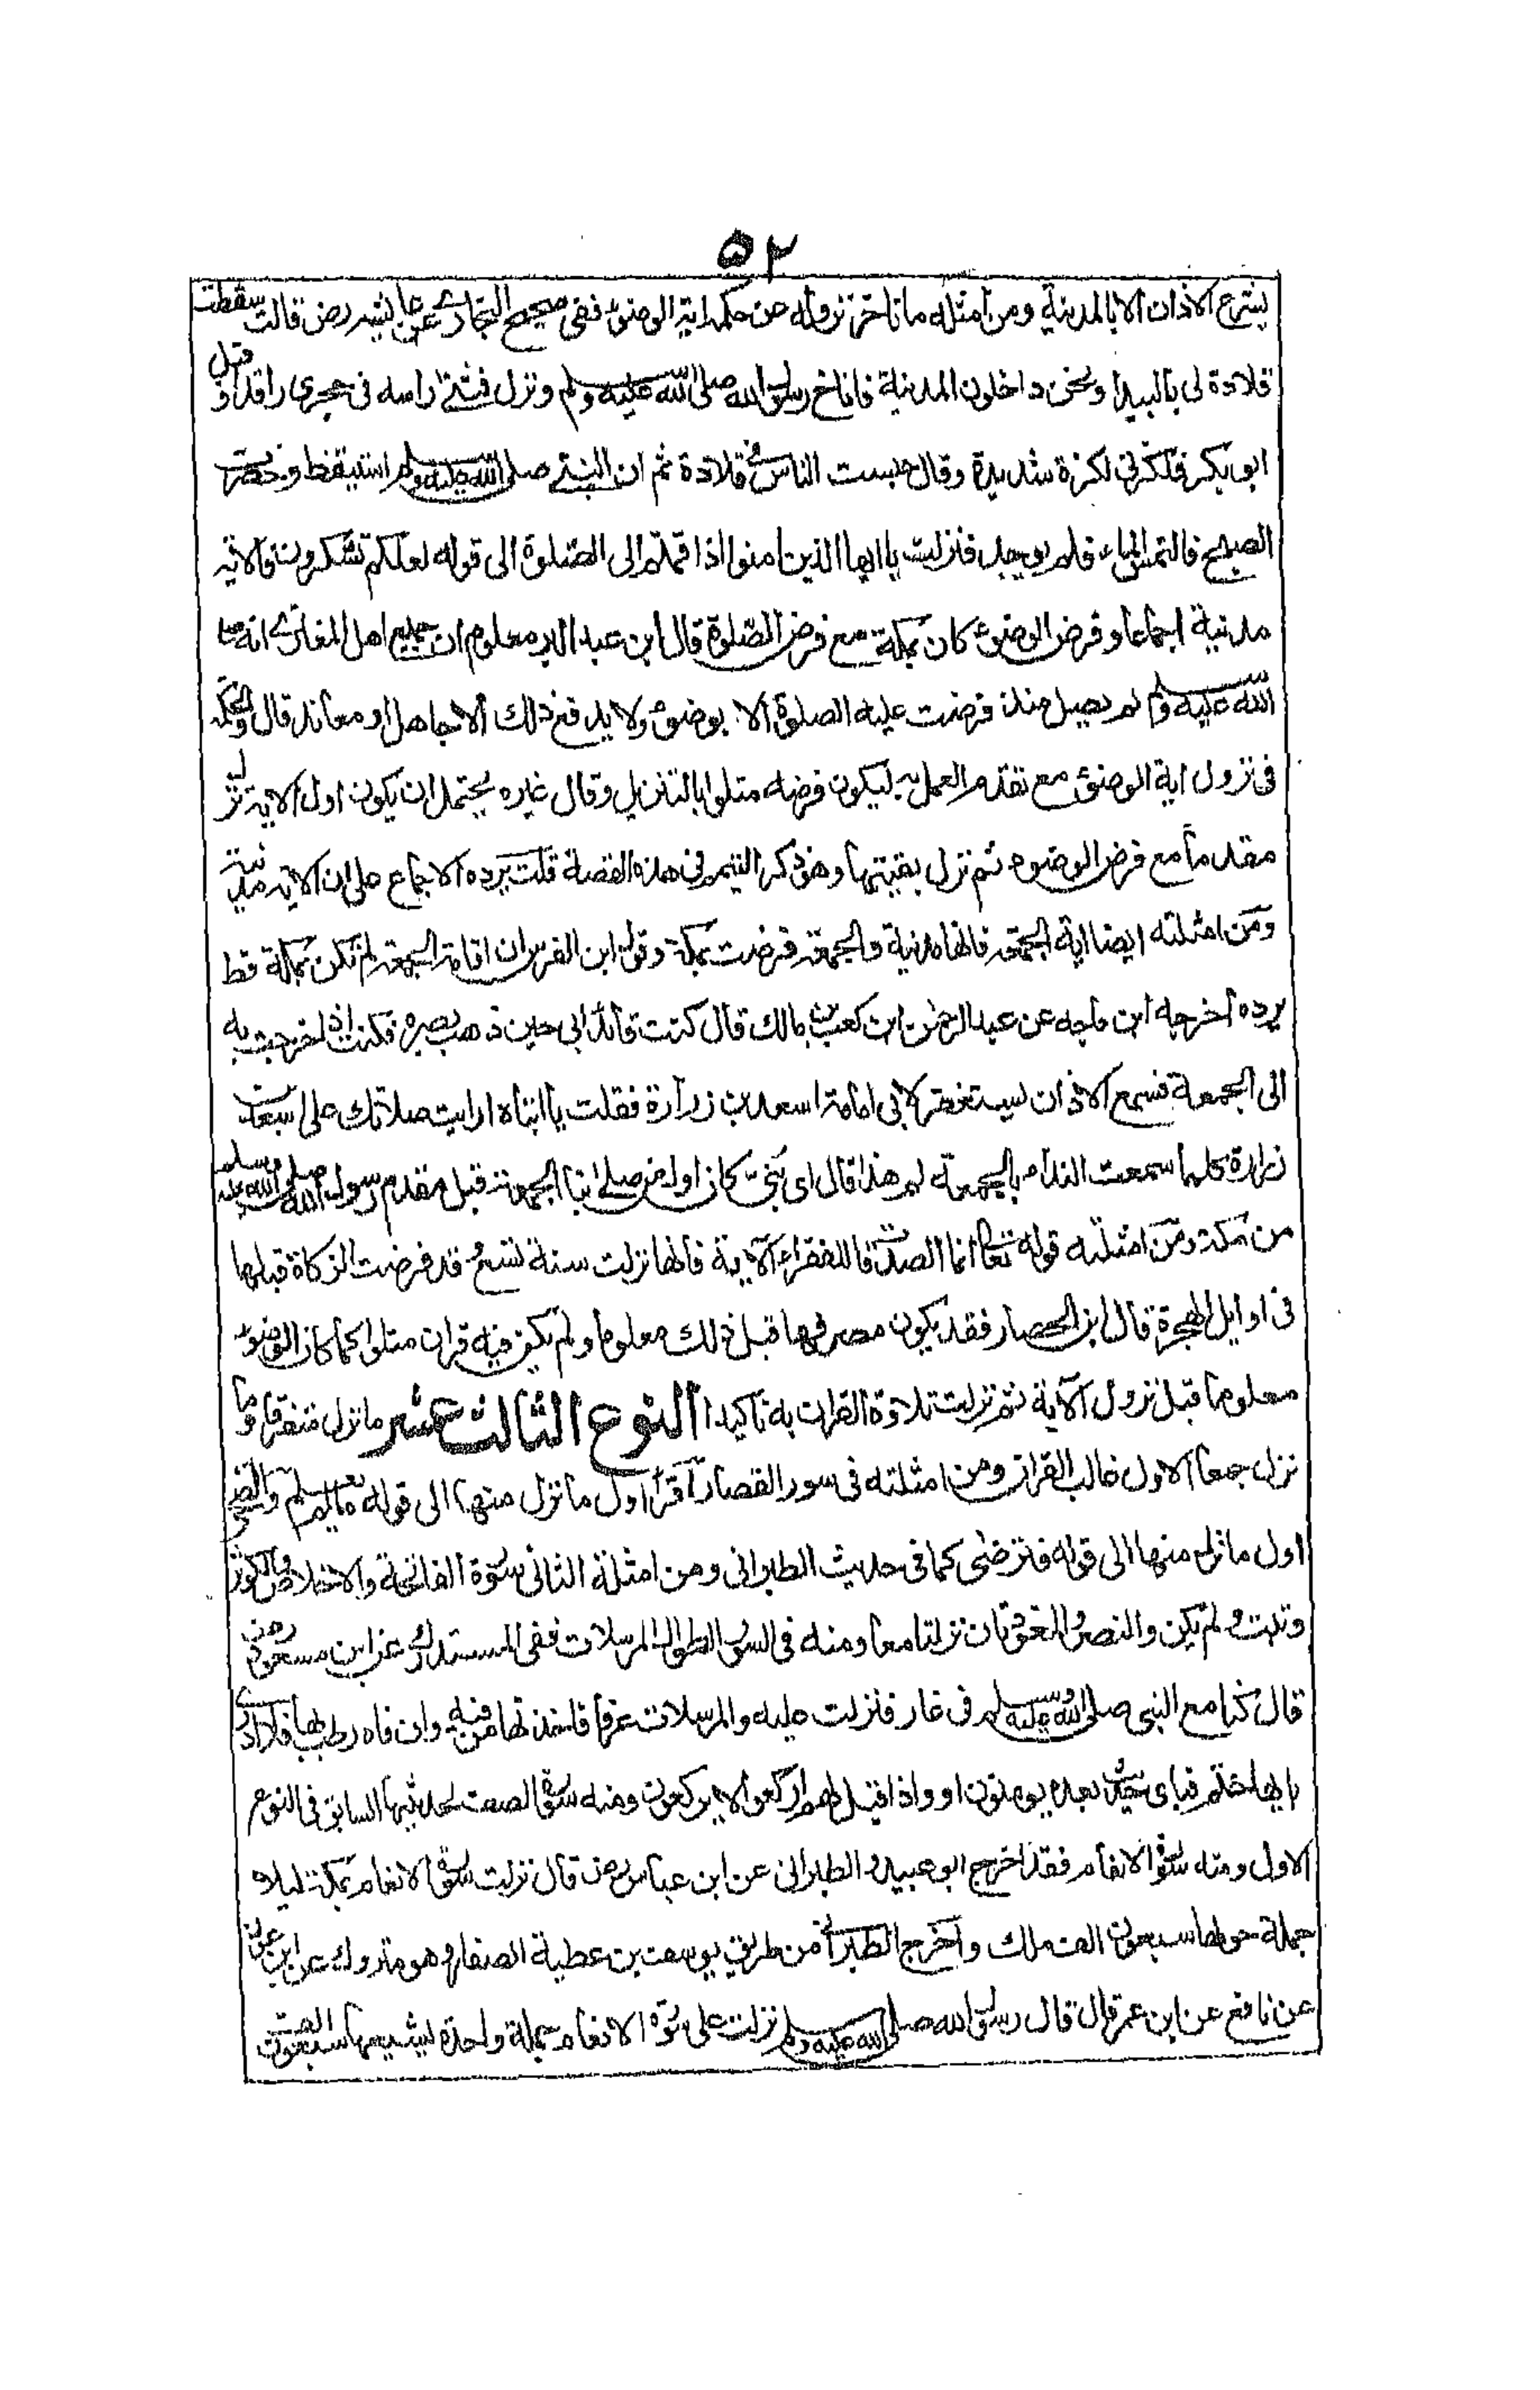 ٥٢
يشرع الاذان الا بالمدينة ومن امثله ما تاخر نزوله عن حكمه اية الوضوء ففى صحيح البخارى عن عايشه رض قالت سقطت
قلادة لى بالبيدا ونحن داخلون المدينة فاناخ رسول الله صلى الله عليه وسلم ونزل فثنى راسه فى حجرى راقدا و قبل
ابو بكر فلكزنى لكزة شديدة وقال حبست الناس فى قلادة ثم ان النبى صلى الله عليه وسلم استيقظ وحضرت
الصبح فالتمس الماء فلم يوجد فنزلت يا ايها الذين امنوا اذا قمتم الى الصلوة الى قوله لعلكم تشكرون فالاية
مدنية اجماعا وفرض الوضوء كان بمكة مع فرض الصلوة قال ابن عبد البر معلوم ان جميع اهل المغازى انه صلى
الله عليه وسلم لم يصل منذ فرضت عليه الصلوة الا بوضوء ولا يدفع ذلك الا جاهل او معاند قال والحكمة
فى نزول اية الوضوء مع تقدم العمل به ليكون فرضه متلوا بالتنزيل وقال غيره يحتمل ان يكون اول الاية نزل
مقدما مع فرض الوضوء ثم نزل بقيتها وهو ذكر التيمم فى هذه القصة قلت يرده الاجماع على ان الاية مدنية
ومن امثلته ايضا اية الجمعة فانها مدنية والجمعة فرضت بمكة وقول ابن الفرس ان اقامة الجمعة لم تكن بمكة قط
يرده اخرجه ابن ماجه عن عبد الرحمن ابن كعب بن مالك قال كنت قائد ابى حين ذهب بصره فكنت اذا خرجت به
الى الجمعة فسمع الاذان يستغفر لابى امامة اسعد بن زرارة فقلت يا ابتاه ارايت صلاتك على اسعد بن
زرارة كلما سمعت النداء بالجمعة لم هذا قال اى بنى كان اول من صلى بنا الجمعة قبل مقدم رسول الله صلى الله عليه وسلم
من مكة ومن امثلته قوله تعالى انما الصدقات للفقراء الآية فانها نزلت سنة تسع وقد فرضت الزكاة قبلها
فى اوايل الهجرة قال ابن الحصار فقد يكون مصرفها قبل ذلك معلوما ولم يكن فيه قران متلو كما كان الوضوء
معلوما قبل نزول الآية ثم نزلت تلاوة القران به تاكيدا النوع الثالث عشر ما نزل مفرقا وما
نزل جمعا الاول غالب القران ومن امثلته فى سور القصار اقرأ اول ما نزل منها الى قوله ما لم يعلم والضحى
اول ما نزل منها الى قوله فترضى كما فى حديث الطبرانى ومن امثلة الثانى سورة الفاتحة والاخلاص والكوثر
وتبت ولم يكن والنصر والمعوذتان نزلتا معا ومنه فى السور الطوال المرسلات ففى المستدرك عن ابن مسعود رض
قال كنا مع النبى صلى الله عليه وسلم فى غار فنزلت عليه والمرسلات عرفا فاخذتها من فيه وان فاه رطب بها فلا ادرى
بايها ختم فباى حديث بعده يومنون او واذا قيل لهم اركعوا لا يركعون ومنه سورة الصف لحديثها السابق فى النوع
الاول ومنه سورة الانعام فقد اخرج ابو عبيد والطبرانى عن ابن عباس رض قال نزلت سورة الانعام بمكة ليلا
جملة حولها سبعون الف ملك واخرج الطبرانى من طريق يوسف بن عطية الصفار وهو متروك عن ابن عون
عن نافع عن ابن عمر قال قال رسول الله صلى الله عليه وسلم نزلت على سورة الانعام جملة واحدة يشيعها سبعون الف